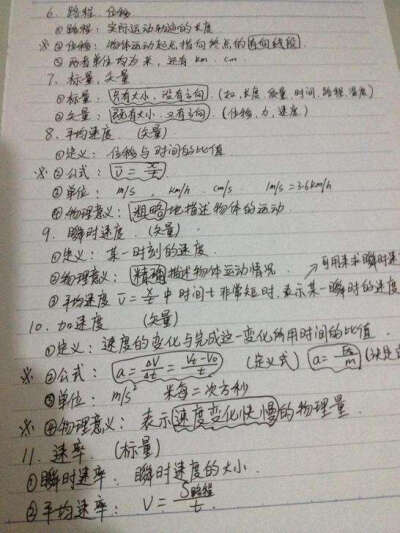 6. 路程、位移
①路程：实际运动轨迹的长度
※②位移：物体运动起点指向终点的有向线段.
③两者单位均为米，还有 km、cm
7. 标量、矢量
①标量：只有大小，没有方向.(如，长度 质量 时间、路程、温度)
②矢量：既有大小，又有方向.(位移、力、速度)
8. 平均速度. (矢量)
①定义：位移与时间的比值
※②公式：v̄=x/t
③单位： m/s 、 km/h 、 cm/s 1m/s=3.6km/h
④物理意义：粗略地描述物体的运动
9. 瞬时速度. (矢量)
①定义：某一时刻的速度.
②物理意义：精确描述物体运动情况.
可用来求瞬时速
③平均速度 v̄=x/t 中时间t非常短时，表示某一瞬时的速度
10. 加速度 (矢量)
①定义：速度的变化与完成这一变化所用时间的比值.
※②公式：a=ΔV/Δt=(Vt-V0)/t (定义式) a=F合/m
③单位： m/s² 米每二次方秒
※④物理意义：表示速度变化快慢的物理量.
11. 速率. (标量)
①瞬时速率：瞬时速度的大小.
②平均速率： V=S路程/t